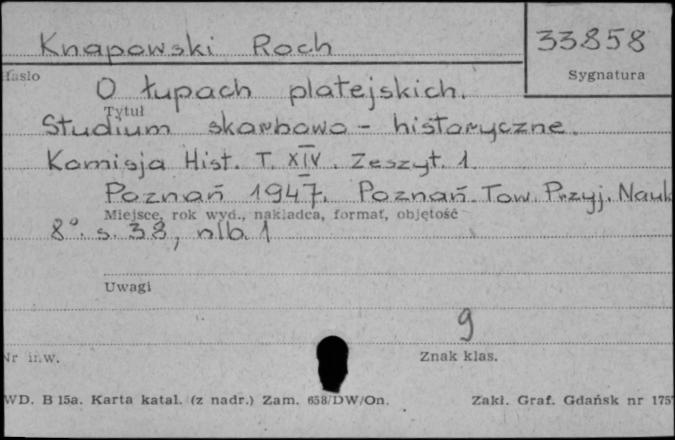 Knapowski Roch 33858
Hasło Sygnatura
O łupach platejskich.
Tytuł
Studium skarbowo - historyczne.
Komisja Hist. T. XIV. Zeszyt. 1
Poznań 1947. Poznań. Tow. Przyj. Nauk
Miejsce, rok wyd., nakładca, format, objętość
8°. s. 38, nlb. 1
Uwagi
9
Nr inw. Znak klas.
WD. B 15a. Karta katal. (z nadr.) Zam. 658/DW/On. Zakł. Graf. Gdańsk nr 175